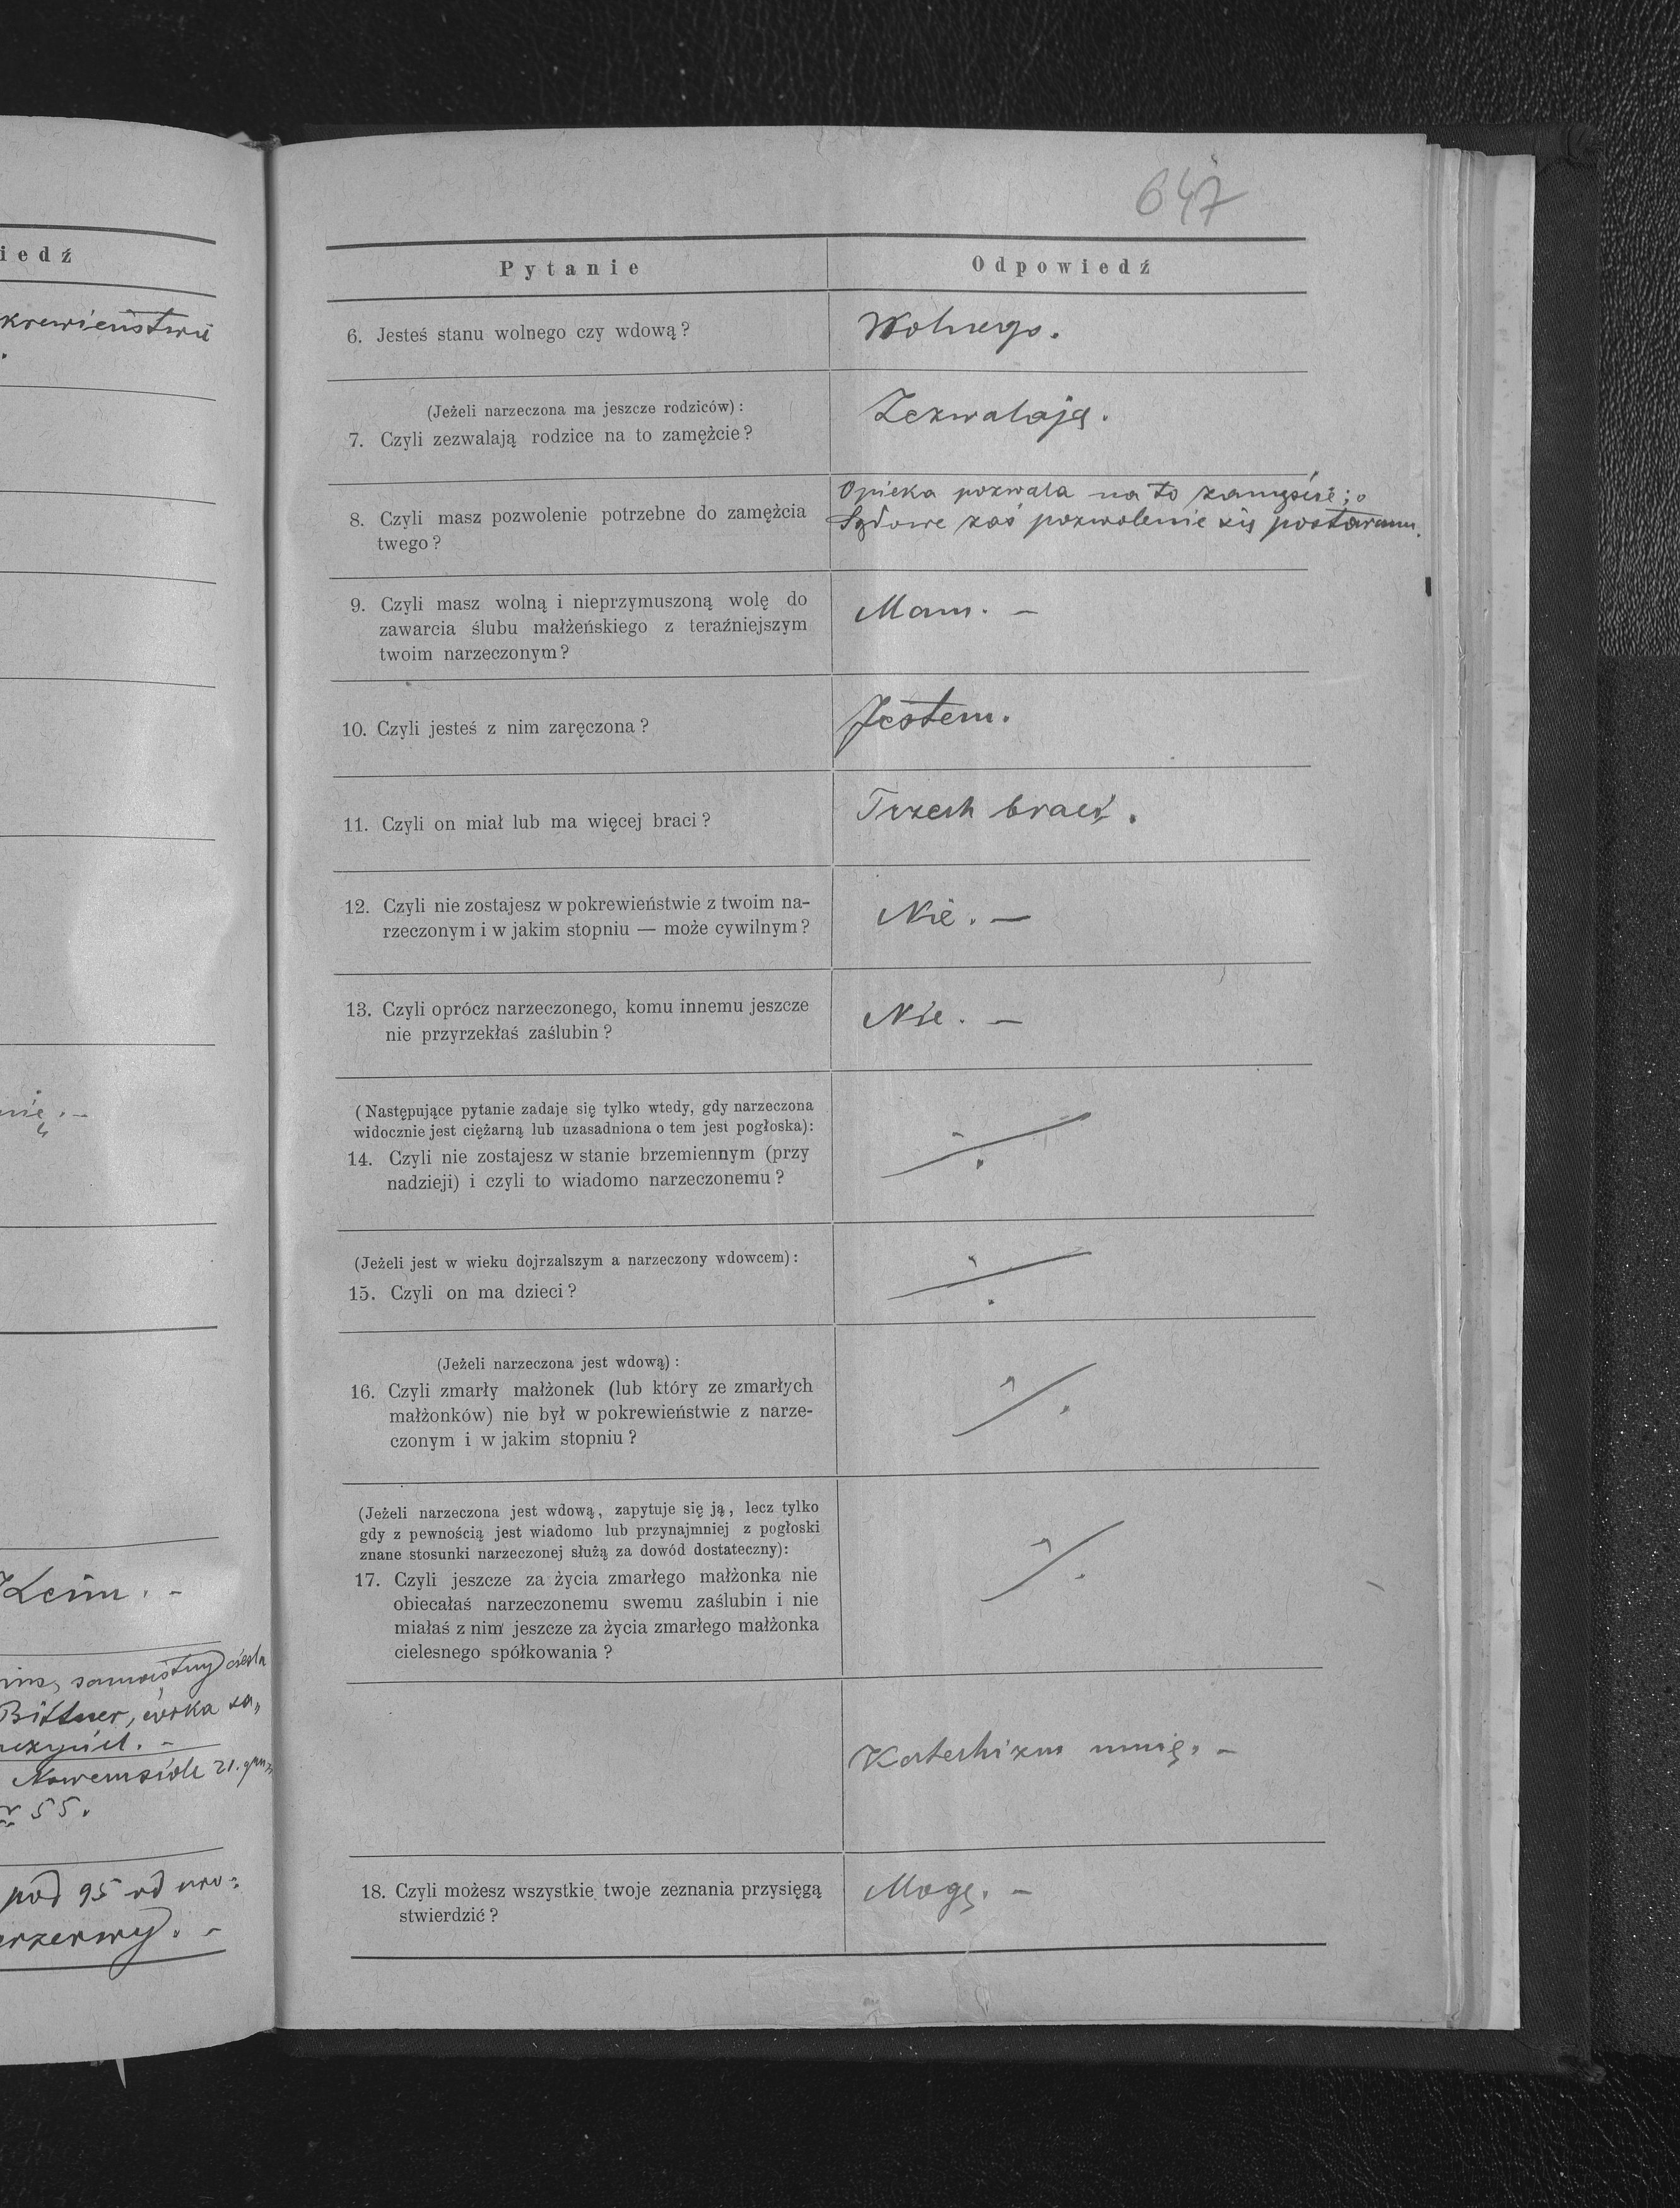 iedź
krewieństwie
.
nię. -
Keim. -
samoistny cieśla
Bittner, córka za„
Nowemsiole 21.
55.
pod 95 od uro-
647
Pytanie
Odpowiedź
6. Jesteś stanu wolnego czy wdową?
Wolnego.
(Jeżeli narzeczona ma jeszcze rodziców):
7. Czyli zezwalają rodzice na to zamężcie?
Zezwalają.
8. Czyli masz pozwolenie potrzebne do zamężcia
twego?
Opieka pozwala na to zamęście; o
Sądowe zaś pozwolenie się postaram.
9. Czyli masz wolną i nieprzymuszoną wolę do
zawarcia ślubu małżeńskiego z teraźniejszym
twoim narzeczonym?
Mam. -
10. Czyli jesteś z nim zaręczona?
Jestem.
11. Czyli on miał lub ma więcej braci?
Trzech braci.
12. Czyli nie zostajesz w pokrewieństwie z twoim na-
rzeczonym i w jakim stopniu — może cywilnym?
Nie. —
13. Czyli oprócz narzeczonego, komu innemu jeszcze
nie przyrzekłaś zaślubin?
Nie. —
(Następujące pytanie zadaje się tylko wtedy, gdy narzeczona
widocznie jest ciężarną lub uzasadniona o tem jest pogłoska):
14. Czyli nie zostajesz w stanie brzemiennym (przy
nadzieji) i czyli to wiadomo narzeczonemu?
(Jeżeli jest w wieku dojrzalszym a narzeczony wdowcem):
15. Czyli on ma dzieci?
(Jeżeli narzeczona jest wdową):
16. Czyli zmarły małżonek (lub który ze zmarłych
małżonków) nie był w pokrewieństwie z narze-
czonym i w jakim stopniu?
(Jeżeli narzeczona jest wdową, zapytuje się ją, lecz tylko
gdy z pewnością jest wiadomo lub przynajmniej z pogłoski
znane stosunki narzeczonej służą za dowód dostateczny):
17. Czyli jeszcze za życia zmarłego małżonka nie
obiecałaś narzeczonemu swemu zaślubin i nie
miałaś z nim jeszcze za życia zmarłego małżonka
cielesnego spółkowania?
Katechizm umię. -
18. Czyli możesz wszystkie twoje zeznania przysięgą
stwierdzić?
Mogę. -